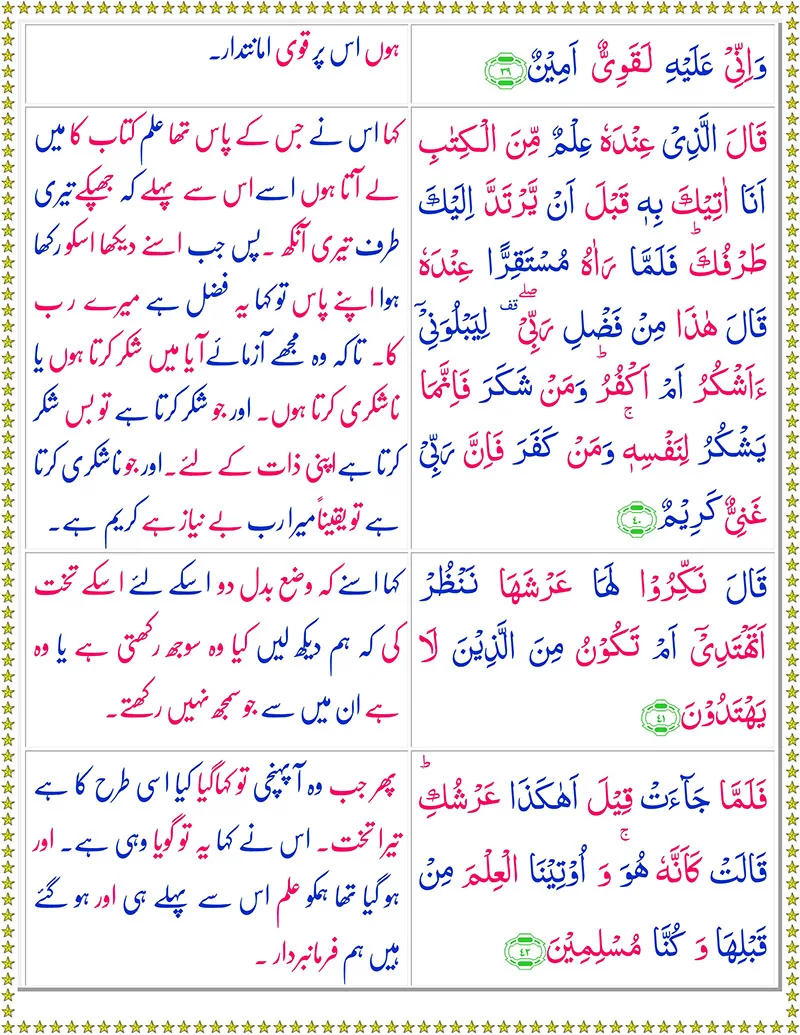 وَاِنِّیْ عَلَیْهِ لَقَوِیٌّ اَمِیْنٌ ﴿۳۹﴾
ہوں اس پر قوی امانتدار۔
قَالَ الَّذِیْ عِنْدَهٗ عِلْمٌ مِّنَ الْكِتٰبِ
اَنَا اٰتِیْكَ بِهٖ قَبْلَ اَنْ یَّرْتَدَّ اِلَیْكَ
طَرْفُكَ ؕ فَلَمَّا رَاٰهُ مُسْتَقِرًّا عِنْدَهٗ
قَالَ هٰذَا مِنْ فَضْلِ رَبِّیْ ۖ۫ لِیَبْلُوَنِیْۤ
ءَاَشْكُرُ اَمْ اَكْفُرُ ؕ وَمَنْ شَكَرَ فَاِنَّمَا
یَشْكُرُ لِنَفْسِهٖ ۚ وَمَنْ كَفَرَ فَاِنَّ رَبِّیْ
غَنِیٌّ كَرِیْمٌ ﴿۴۰﴾
کہا اس نے جس کے پاس تھا علم کتاب کا میں
لے آتا ہوں اسے اس سے پہلے کہ جھپکے تیری
طرف تیری آنکھ ۔پس جب اسنے دیکھا اسکو رکھا
ہوا اپنے پاس تو کہا یہ فضل ہے میرے رب
کا۔ تاکہ وہ مجھے آزمائے آیا میں شکر کرتا ہوں یا
ناشکری کرتا ہوں۔ اور جو شکر کرتا ہے تو بس شکر
کرتا ہے اپنی ذات کے لئے ۔اور جو ناشکری کرتا
ہے تو یقیناً میرا رب بے نیاز ہے کریم ہے۔
قَالَ نَكِّرُوْا لَهَا عَرْشَهَا نَنْظُرْ
اَتَهْتَدِیْۤ اَمْ تَكُوْنُ مِنَ الَّذِیْنَ لَا
یَهْتَدُوْنَ ﴿۴۱﴾
کہا اسنے کہ وضع بدل دو اسکے لئے اسکے تخت
کی کہ ہم دیکھ لیں کیا وہ سوجھ رکھتی ہے یا وہ
ہے ان میں سے جو سمجھ نہیں رکھتے۔
فَلَمَّا جَآءَتْ قِیْلَ اَهٰكَذَا عَرْشُكِ ؕ
قَالَتْ كَاَنَّهٗ هُوَ ۚ وَ اُوْتِیْنَا الْعِلْمَ مِنْ
قَبْلِهَا وَ كُنَّا مُسْلِمِیْنَ ﴿۴۲﴾
پھر جب وہ آپہنچی تو کہا گیا کیا اسی طرح کا ہے
تیرا تخت۔ اس نے کہا یہ تو گویا وہی ہے۔ اور
ہو گیا تھا ہمکو علم اس سے پہلے ہی اور ہو گئے
ہیں ہم فرمانبردار ۔